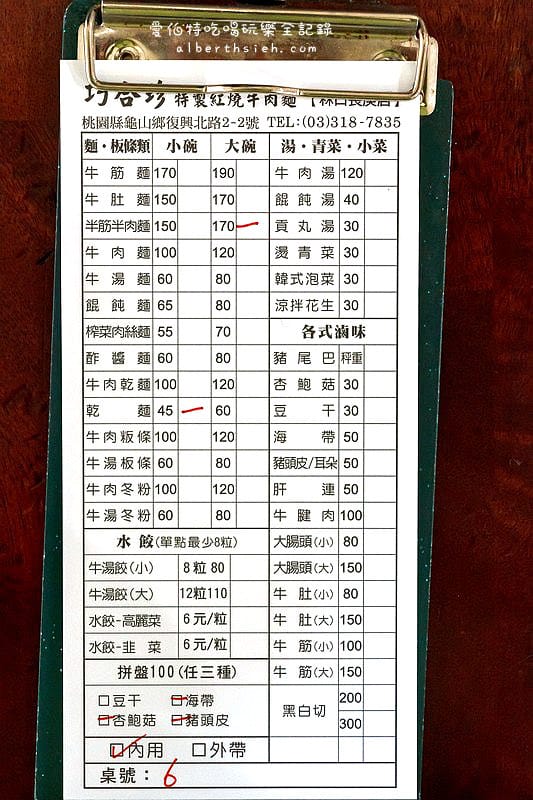 愛伯特吃喝玩樂全記錄
alberthsieh.com
巧杏珍 特製紅燒牛肉麵【林口長庚店】
桃園縣龜山鄉復興北路2-2號 TEL:(03)318-7835
麵・板條類 小碗 大碗 湯・青菜・小菜
牛筋麵 170 190 牛肉湯 120
牛肚麵 150 170 餛飩湯 40
半筋半肉麵 150 170 貢丸湯 30
牛肉麵 100 120 燙青菜 30
牛湯麵 60 80 韓式泡菜 30
餛飩麵 65 80 涼拌花生 30
榨菜肉絲麵 55 70 各式滷味
酢醬麵 60 80 豬尾巴 秤重
牛肉乾麵 100 120 杏鮑菇 30
乾麵 45 60 豆干 30
牛肉粄條 100 120 海帶 50
牛湯板條 60 80 豬頭皮/耳朵 50
牛肉冬粉 100 120 肝連 50
牛湯冬粉 60 80 牛腱肉 100
水餃(單點最少8粒) 大腸頭(小) 80
牛湯餃(小) 8粒 80 大腸頭(大) 150
牛湯餃(大) 12粒110 牛肚(小) 80
水餃-高麗菜 6元/粒 牛肚(大) 150
水餃-韭菜 6元/粒 牛筋(小) 100
拼盤100(任三種) 牛筋(大) 150
□豆干 □海帶 黑白切 200
□杏鮑菇 □豬頭皮 300
□內用 □外帶
桌號：6